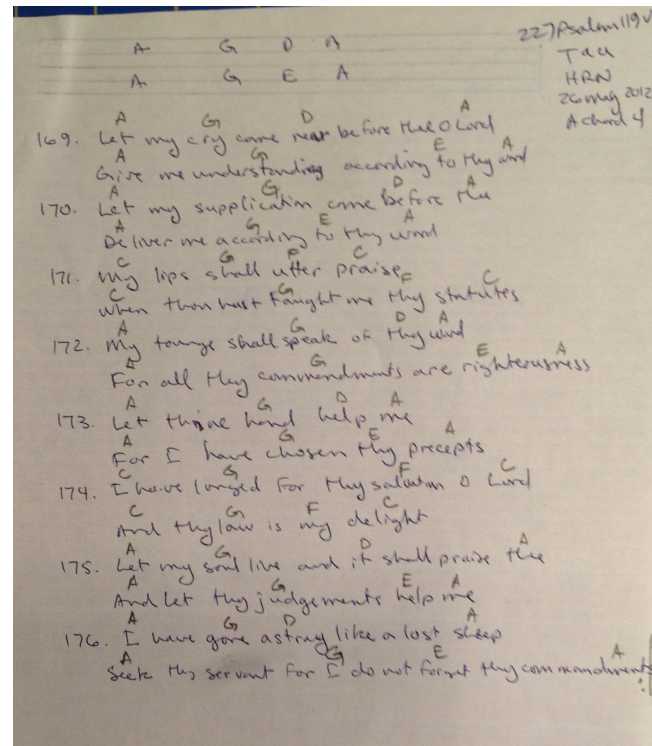 227 Psalm 119v
Tau
HRN
26 may 2012
A chord 4
A G D A
A G E A
A G D A
169. Let my cry come near before thee O Lord
A G E A
Give me understanding according to thy word
A G D A
170. Let my supplication come before thee
A G E A
Deliver me according to thy word
C G F C
171. My lips shall utter praise
C G F C
When thou hast taught me thy statutes
A G D A
172. My tounge shall speak of thy word
A G E A
For all thy commendments are righteousness
A G D A
173. Let thine hand help me
A G E A
For I have chosen thy precepts
C G F C
174. I have longed for thy salvation O Lord
C G F C
And thy law is my delight
A G D A
175. Let my soul live and it shall praise thee
A G E A
And let thy judgements help me
A G D A
176. I have gone astray like a lost sheep
A G E A
Seek thy servant for I do not forget thy commandments